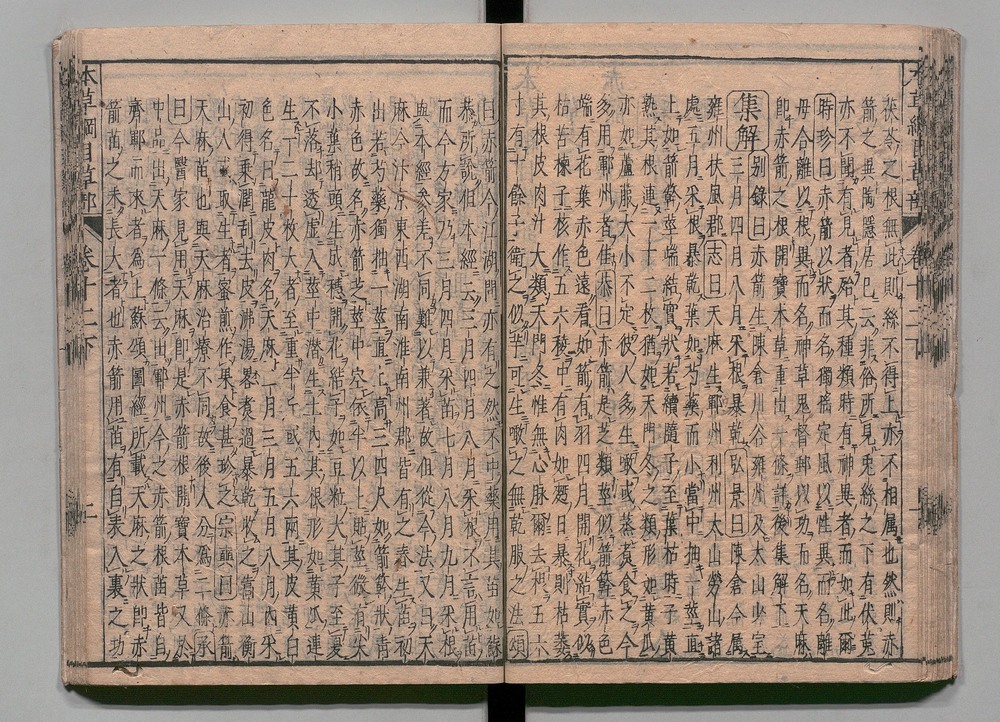 茯苓之根無此則絲不得上亦不相属也然則赤
箭之異陶隱居已云非俗所見兎絲之下有伏菟
亦不聞有見者殆其種類時有神異者而如此爾
時珍曰赤箭以狀而名獨搖定風以性異而名離
母合離以根異而名神草鬼督郵以功而名天麻
即赤箭之根開寶本草重出一條詳後集解下
集解 别錄曰赤箭生陳倉川谷雍州及太山少室
三月四月八月采根暴乾弘景曰陳倉今属
雍州扶風郡志曰天麻生鄆州利州太山勞山諸
處五月采根暴乾葉如芍藥而小當中抽一莖直
上如箭簳莖端結實狀若續隨子至葉枯時子黄
熟其根連一十二枚猶如天門冬之類形如黄瓜
亦如蘆菔大小不定彼人多生啖或蒸煮食之今
多用鄆州者佳恭曰赤箭是芝類莖似箭簳赤色
端有花葉赤色遠看如箭有羽四月開花結實似
枯苦楝子核作五六稜中有肉如麪日暴則枯萎
其根皮肉汁大類天門冬惟無心脉爾去根五六
寸有十餘子衛之似芋可生啖之無乾服之法頌
曰赤箭今江湖間亦有之然不中藥用其苗如蘇
恭所說但本經云三月四月八月采根不言用苗
而今方家乃三月四月采苗七月八月九月采根
與本經參差不同難以兼著故但從今法又曰天
麻今汴京東西湖南淮南州郡皆有之春生苗初
出若芍藥獨抽一莖直上高三四尺如箭簳狀青
赤色故名赤箭芝莖中空依半以上貼莖微有尖
小葉梢頭生成穗開花結子如豆粒大其子至夏
不落却透虚入莖中潜生土内其根形如黄瓜連
生一二十枚大者至重半斤或五六兩其皮黄白
色名曰龍皮肉名天麻二月三月五月八月内采
初得乘潤刮去皮沸湯畧煮過暴乾收之嵩山衡
山人或取生者蜜煎作果食甚珍之宗奭曰赤箭
天麻苗也與天麻治療不同故後人分為二條承
曰今醫家見用天麻即是赤箭根開寶本草又於
中品出天麻一條云出鄆州今之赤箭根苗皆自
齊鄆而來者為上蘇頌圖經所載天麻之狀即赤
箭苗之未長大者也赤箭用苗有自表入裏之功
本草綱目草部
卷十二下